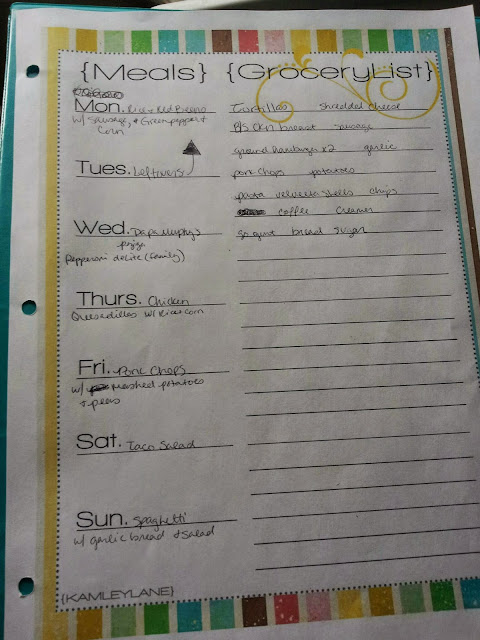 {Meals} {GroceryList}
Mon. Rice & Red Beans
w/ Sausage, & Green pepper &
Corn
Tues. Leftovers
Wed. Papa Murphy's
pizza
Pepperoni delite (family)
Thurs. Chicken
Quesadillas w/ Rice & corn
Fri. Pork Chops
w/ mashed potatoes
& peas
Sat. Taco Salad
Sun. Spaghetti
w/ garlic bread & salad
Tortillas shredded cheese
B/S ckn breast sausage
ground hamburger x2 garlic
pork chops potatoes
pasta velveeta shells chips
coffee creamer
bread sugar
{KAMLEYLANE}